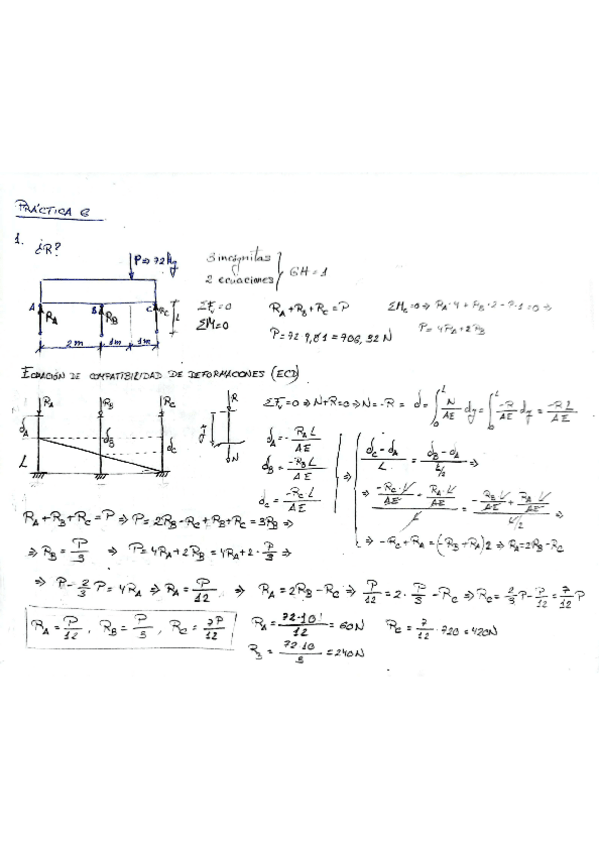 PRÁCTICA 6
1. ¿R?
P⇒72 kg
3 incógnitas
2 ecuaciones
GH=1
A RA B RB C RC L
2m 1m 1m
ΣFv=0
ΣM=0
RA+RB+RC=P
P=72·9,81=706,32 N
ΣMC=0⇒RA·4+RB·2-P·1=0⇒
P=4RA+2RB
ECUACIÓN DE COMPATIBILIDAD DE DEFORMACIONES (ECD)
RA RB RC
dA dB dC
L
R
y
N
ΣFv=0⇒N+R=0⇒N=-R= d=∫₀ᴸ N/AE dy=∫₀ᴸ -R/AE dy=-RL/AE
dA=-RA L/AE
dB=-RB L/AE
dC=-RC·L/AE
⇒ (dC-dA)/L = (dB-dA)/(L/2) ⇒
⇒ (-RC·L/AE + RA·L/AE)/L = (-RB·L/AE + RA·L/AE)/(L/2) ⇒
⇒ -RC+RA=(-RB+RA)2⇒RA=2RB-RC
RA+RB+RC=P⇒P=2RB-RC+RB+RC=3RB⇒
⇒RB=P/3 ⇒ P=4RA+2RB=4RA+2·P/3⇒
⇒ P-2/3P=4RA⇒RA=P/12 ⇒ RA=2RB-RC⇒P/12=2·P/3-RC⇒RC=2/3P-P/12=7/12P
RA=P/12, RB=P/3, RC=7P/12
RA=72·10/12=60N
RC=7/12·720=420N
RB=72·10/3=240N